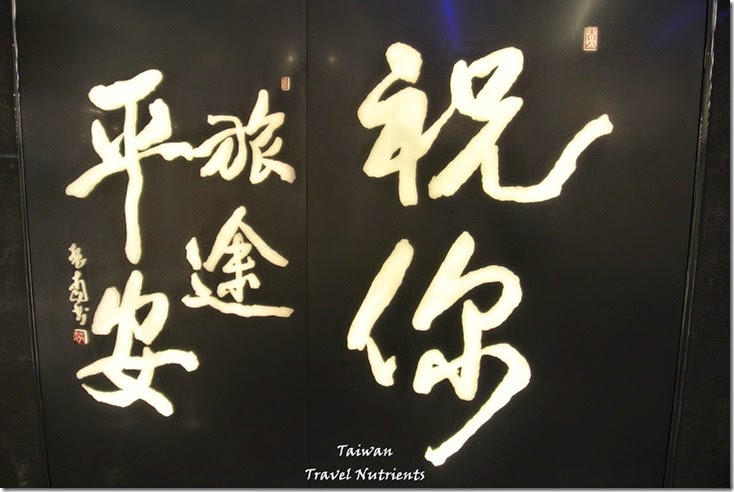 祝你
旅途
平安
Taiwan
Travel Nutrients